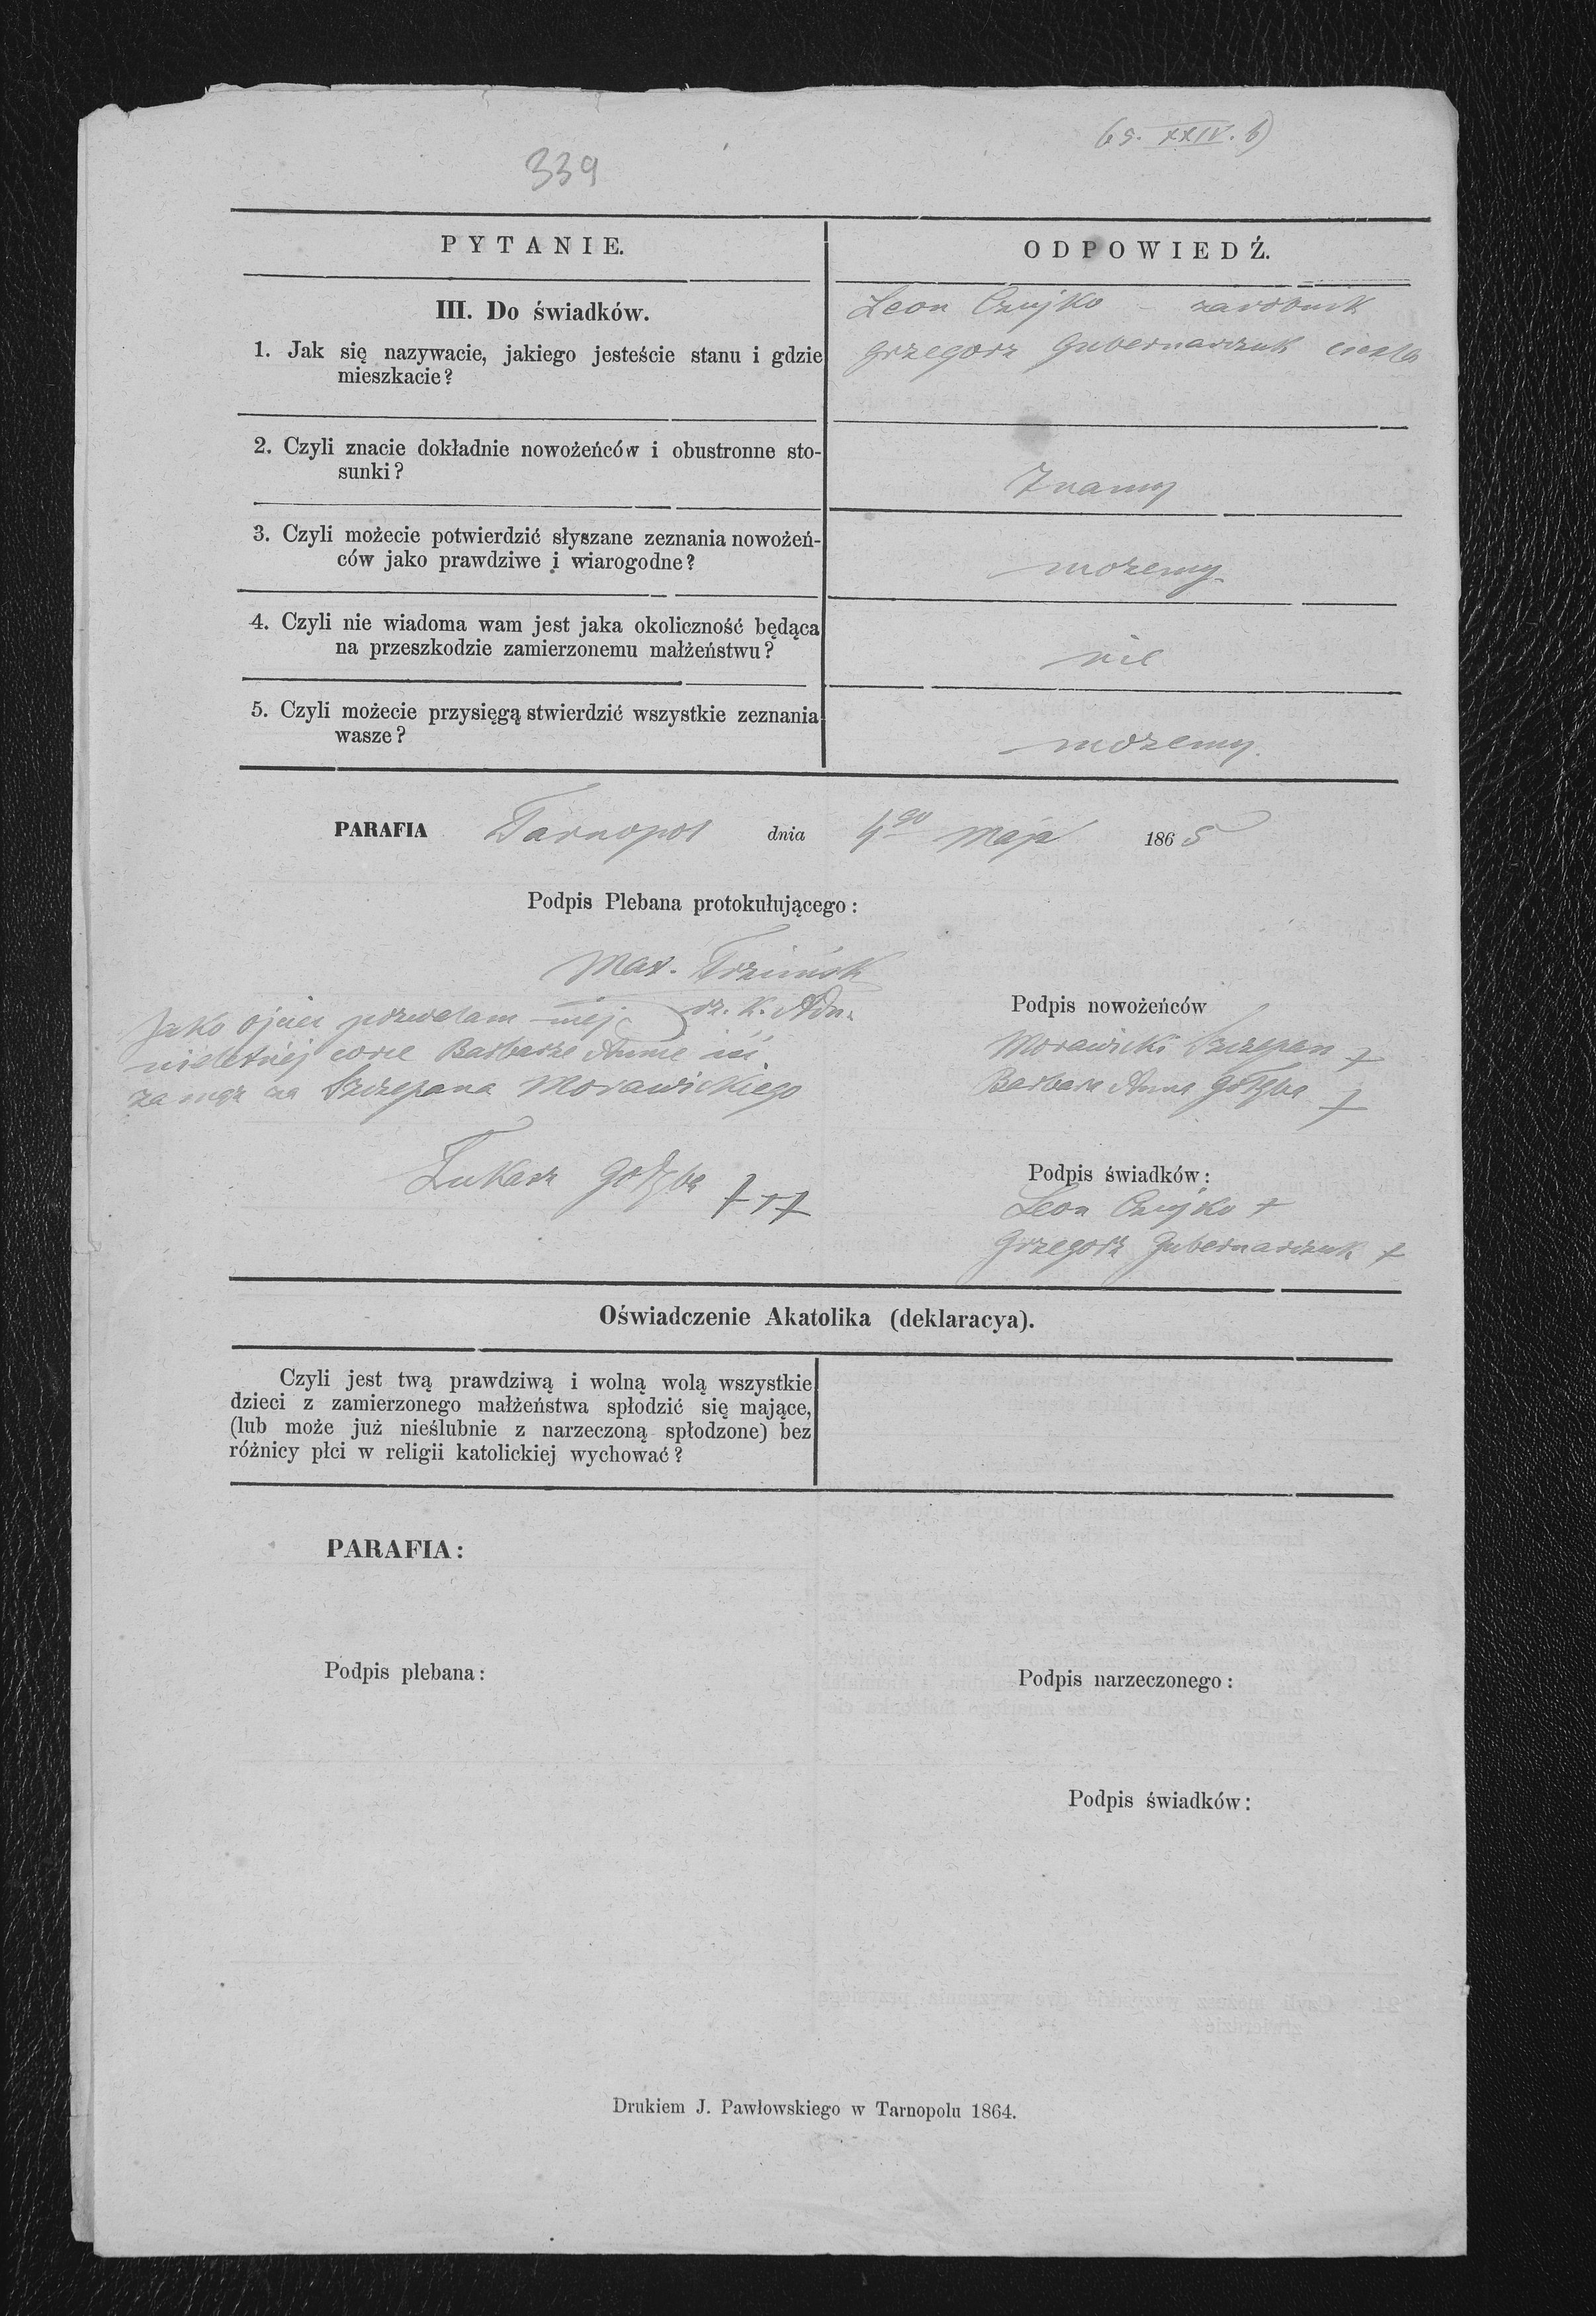 339
65. XXIV. b)
PYTANIE.
ODPOWIEDŹ.
III. Do świadków.
1. Jak się nazywacie, jakiego jesteście stanu i gdzie
mieszkacie?
Leon Czujko – zarobnik
Grzegorz Gubernarczuk cieśla
2. Czyli znacie dokładnie nowożeńców i obustronne sto-
sunki?
Znamy
3. Czyli możecie potwierdzić słyszane zeznania nowożeń-
ców jako prawdziwe i wiarogodne?
możemy
4. Czyli nie wiadoma wam jest jaka okoliczność będąca
na przeszkodzie zamierzonemu małżeństwu?
nie
5. Czyli możecie przysięgą stwierdzić wszystkie zeznania
wasze?
możemy.
PARAFIA Tarnopol dnia 4go Maja 1865
Podpis Plebana protokułującego:
Max.
Jako ojciec pozwalam mej
nieletniej córce Barbarze Annie iść
za mąż za Szczepana Morawickiego
Łukasz Gołęba +++
Podpis nowożeńców
Morawicki Szczepan +
Barbara Anna Gołęba +
Podpis świadków:
Leon Czujko +
Grzegorz Gubernarczuk +
Oświadczenie Akatolika (deklaracya).
Czyli jest twą prawdziwą i wolną wolą wszystkie
dzieci z zamierzonego małżeństwa spłodzić się mające,
(lub może już nieślubnie z narzeczoną spłodzone) bez
różnicy płci w religii katolickiej wychować?
PARAFIA:
Podpis plebana:
Podpis narzeczonego:
Podpis świadków:
Drukiem J. Pawłowskiego w Tarnopolu 1864.